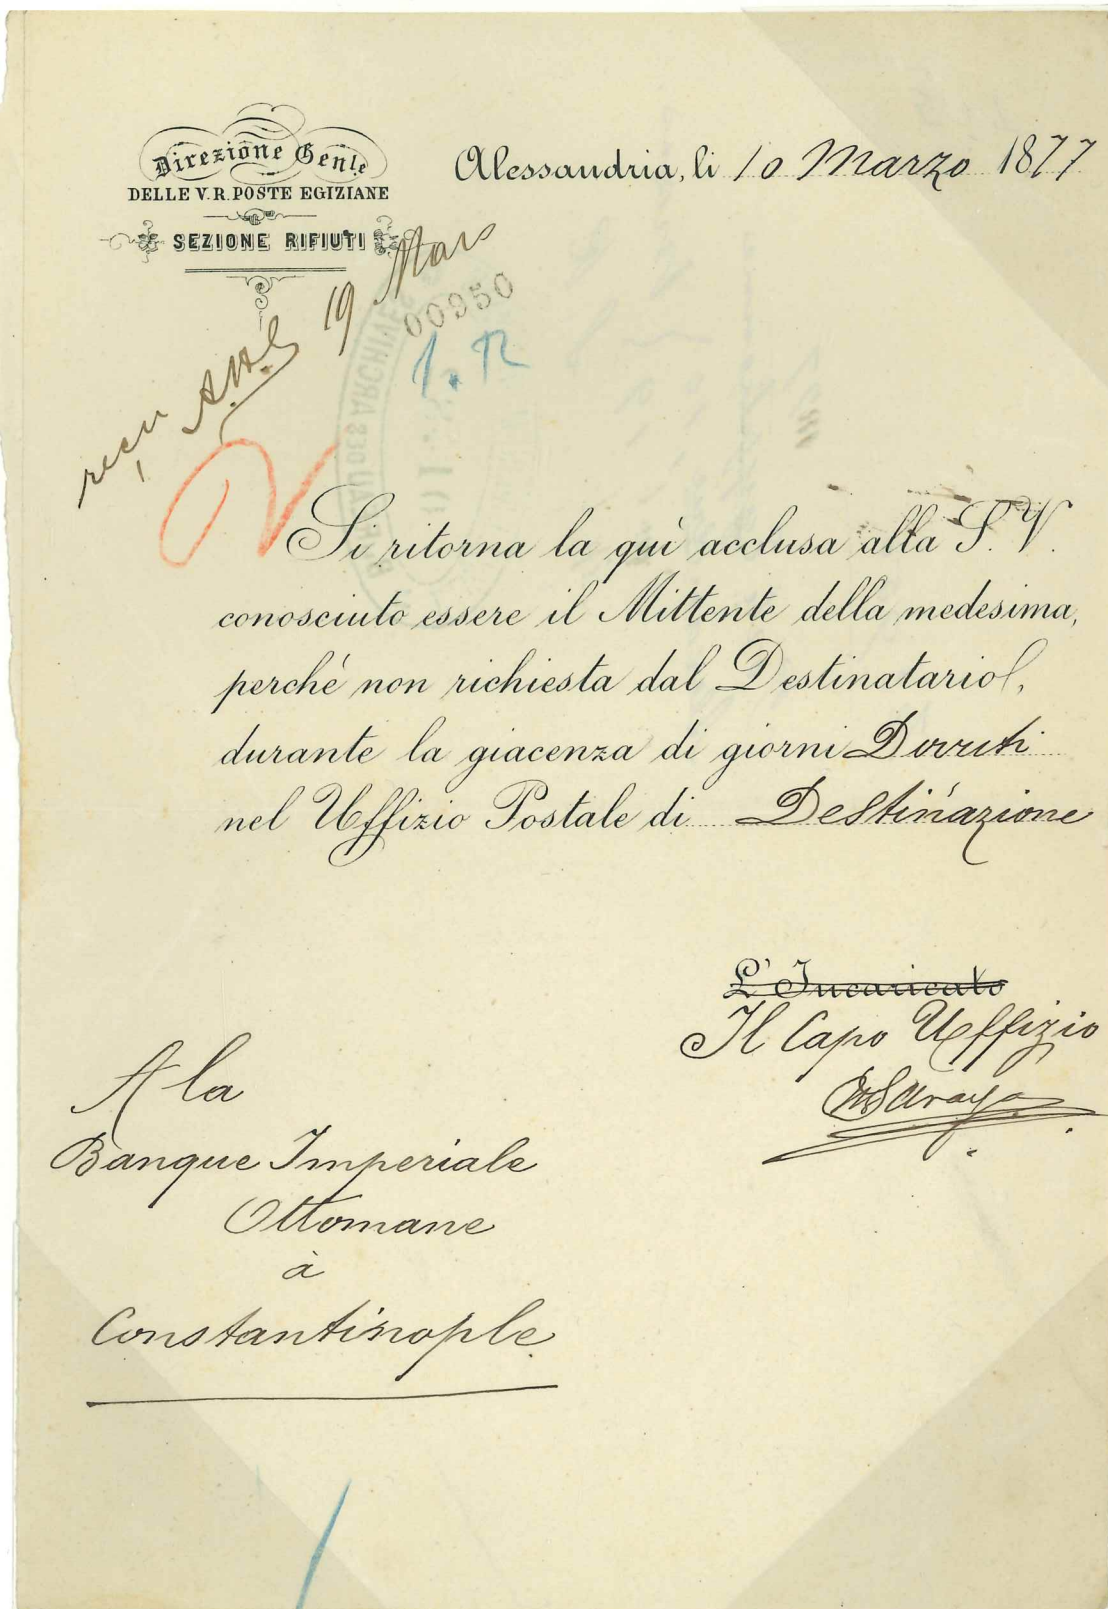 Direzione Genle
DELLE V. R. POSTE EGIZIANE
SEZIONE RIFIUTI
Alessandria, li 10 Marzo 1877
reçu 19 Mars
00950
Si ritorna la qui acclusa alla S. V.
conosciuto essere il Mittente della medesima,
perchè non richiesta dal Destinatario,
durante la giacenza di giorni Dovuti
nel Uffizio Postale di Destinazione
L'Incaricato
Il Capo Uffizio
A la
Banque Imperiale
Ottomane
à
Constantinople